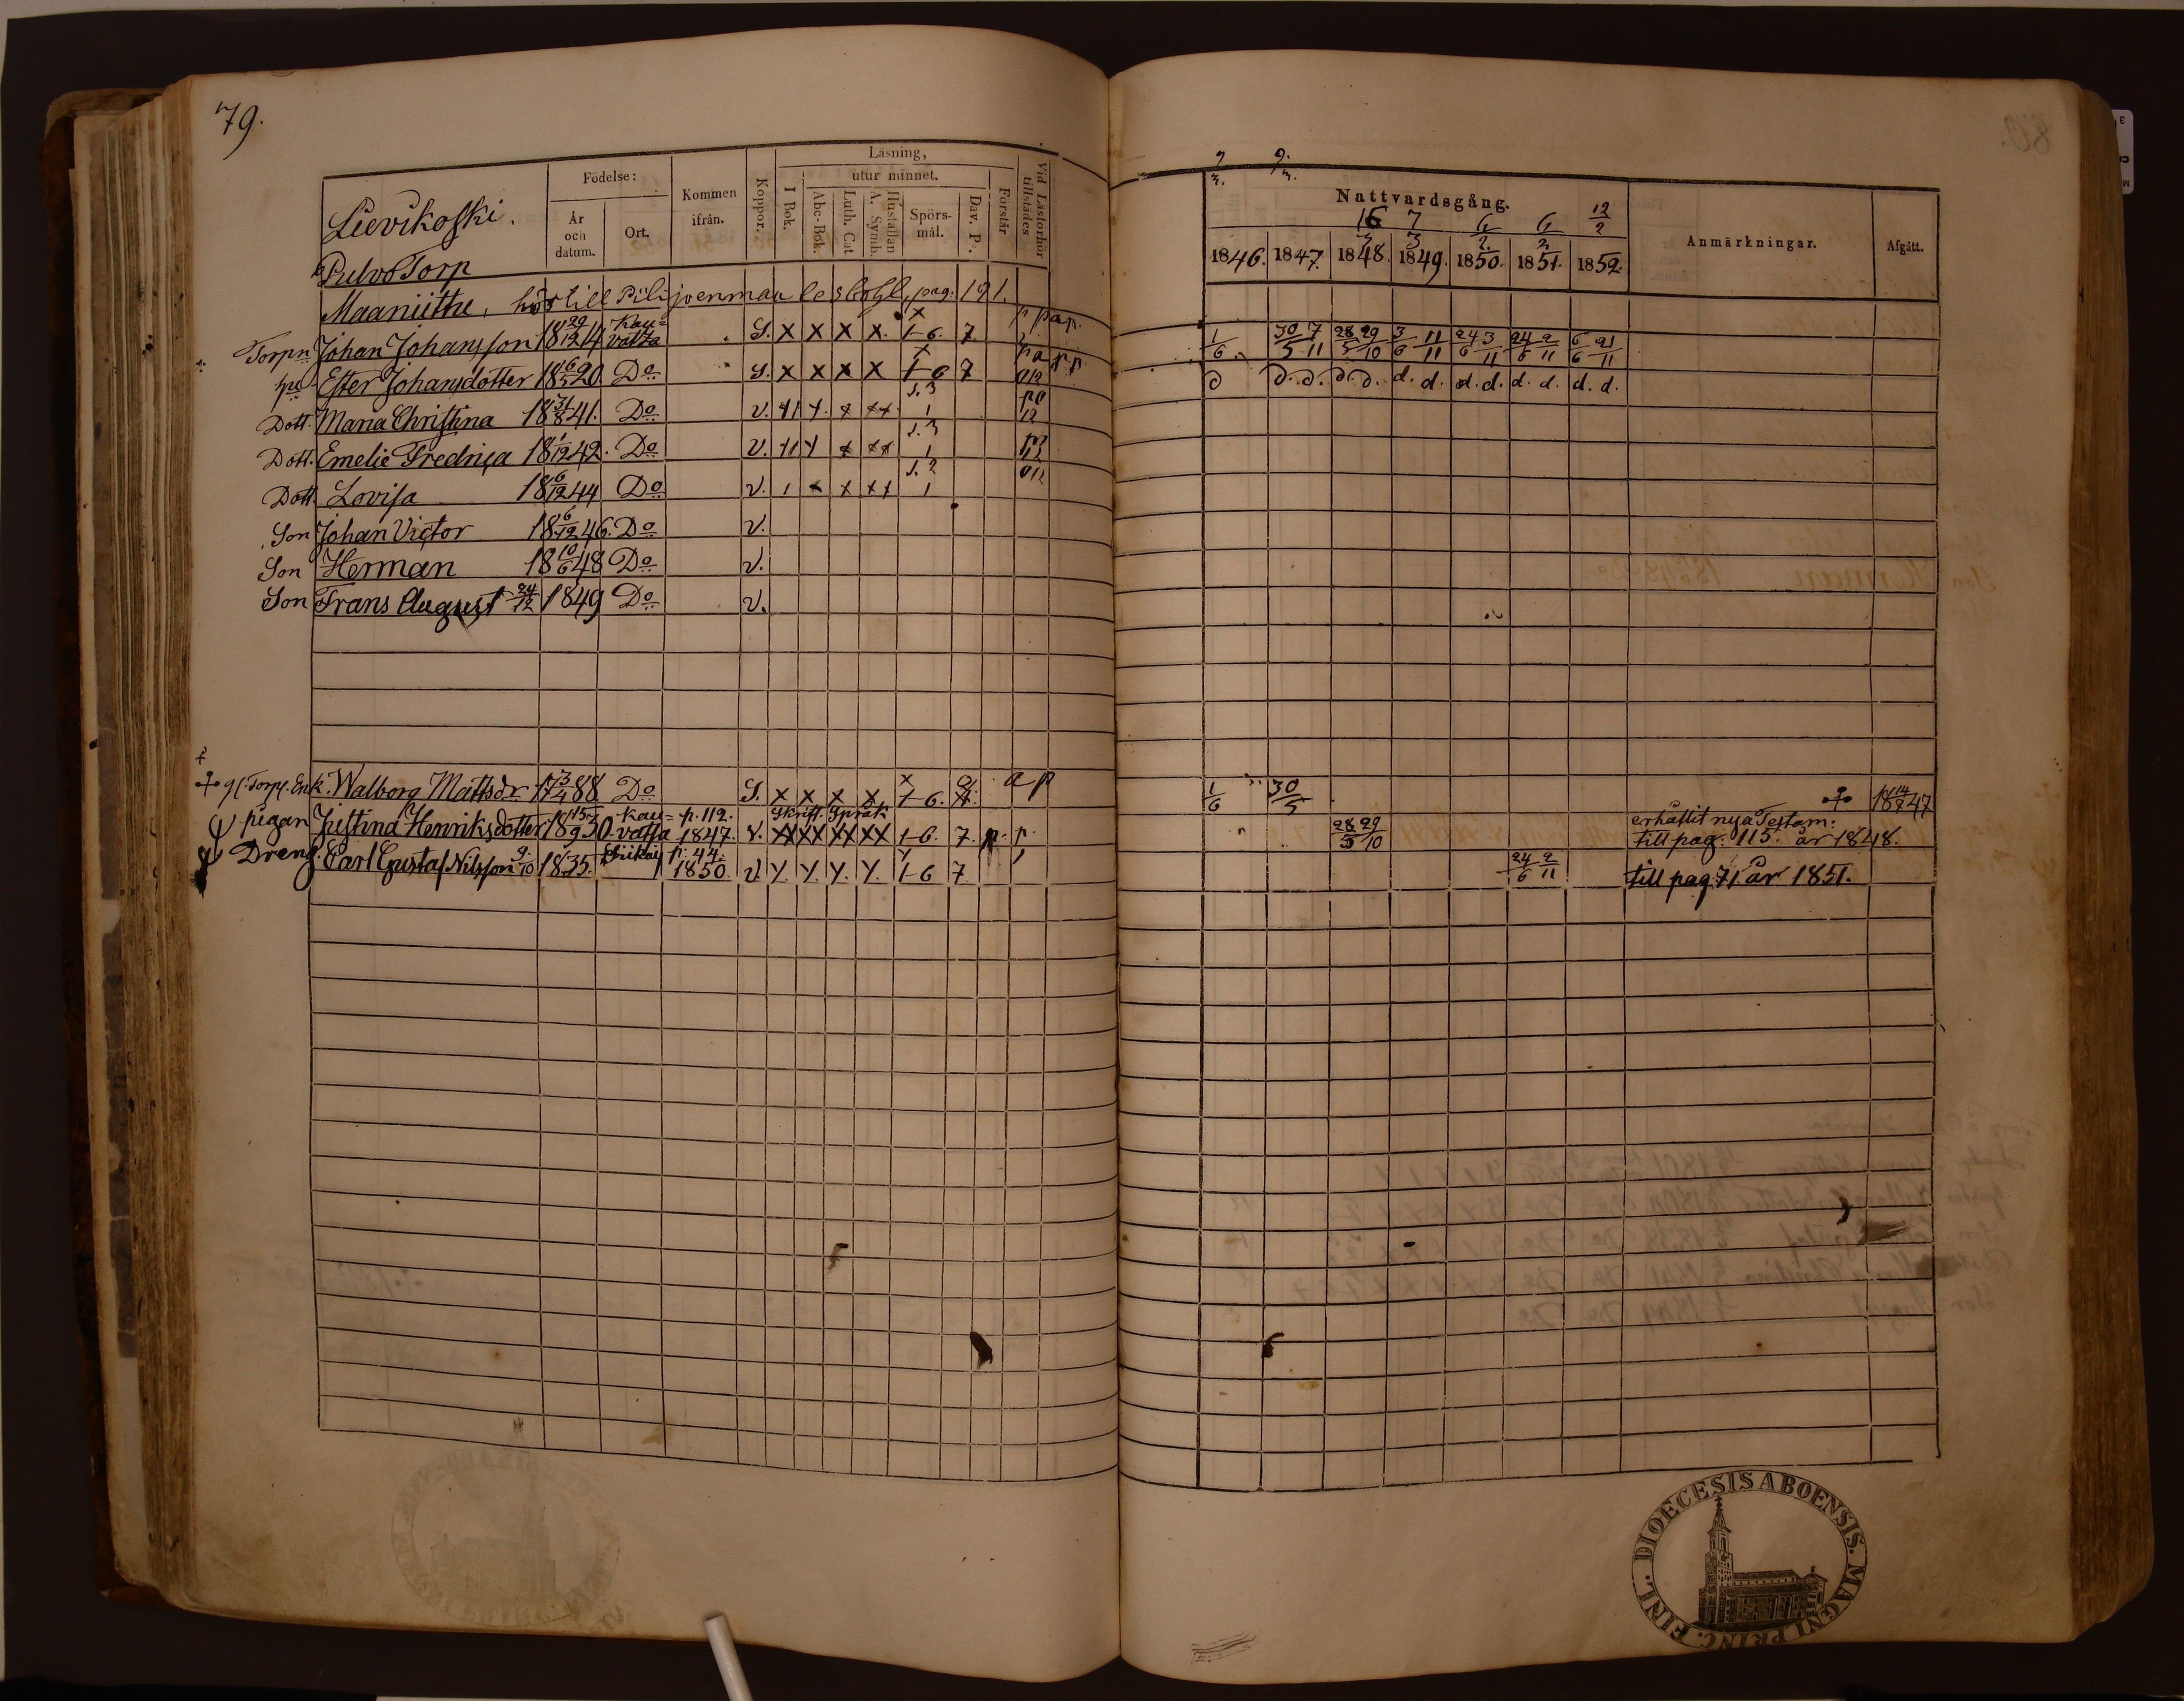 79.
Lievikoski.
Pulvo Torp
Födelse:
År och datum.
Ort.
Kommen ifrån.
Koppor.
Läsning,
I Bok.
utur minnet.
Abc-Bok.
Luth. Cat
Hustaflan A. Symb.
Spörs-mål.
Dav. Ps.
Förstår
Vid Läsförhör tillstädes
Maaniithu, hör till Pilijoenmaa pag. 191.
Torpn Johan Johansson 18 29/12 14 Kau=vatsa S. X X X X. X 1-6. 7 p p a p.
hu Ester Johansdotter 18 6/5 20 Do S. X X X X X 1-6 7
Dott. Maria Christina 18 31/8 41. Do V.
Dott. Emelie Fredrica 18 1/12 42. Do V.
Dott. Lovisa 18 6/12 44 Do V.
Son Johan Victor 18 6/12 46. Do V.
Son Herman 18 10/6 48 Do V.
Son Frans August 24/12 1849 Do V.
gl. Torp. Enk. Walborg Mattsdr 17 3/4 88 Do S. X X X X X 1-6. a p
pigan Justina Henriksdotter 18 15/9 30 Kau=vatsa p. 112. 1847. Skrift. Språk V. XX XX XX XX 1-6. 7. p. p.
Dreng. Carl Gustaf Nilsson 9/10 1835. p. 44. 1850. V. 1-6 7
Nattvardsgång.
Anmärkningar.
Afgått.
16/3 7/3 6/2 6/2 12/2
1846. 1847. 1848. 1849. 1850. 1851. 1852.
1/6 30/5 7/11 28/5 29/10 3/6 11/11 24/6 3/11 24/6 2/11 6/6 21/11
d d. d. d. d. d. d. d. d. d. d. d. d.
1/6 30/5 18 14/7 47
28/5 29/10 erhållit nya Testam: till pag. 115. år 1848.
24/6 2/11 till pag. 71. år 1851.
FINL. DIOECESIS ABOENSIS. MAGNI PRINC.